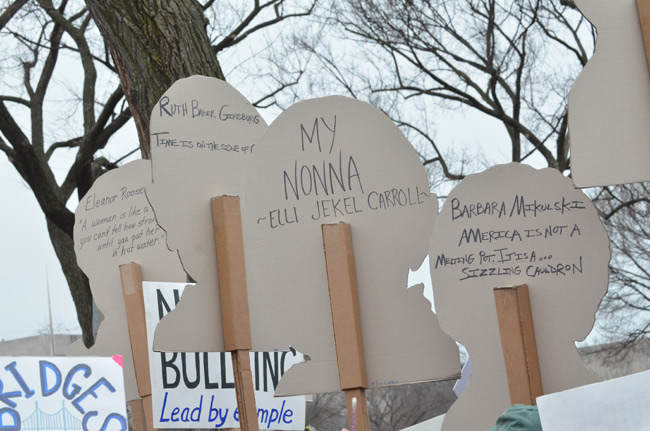 Eleanor
"A woman is like a
you can't tell how
until you put her
in hot water."
RUTH BADER GINSBURG
TIME IS ON THE SIDE OF
MY
NONNA
~ELLI JEKEL CARROLL~
BARBARA MIKULSKI
AMERICA IS NOT A
MELTING POT. IT IS A...
SIZZLING CAULDRON
BRIDGES
BULLYING
Lead by